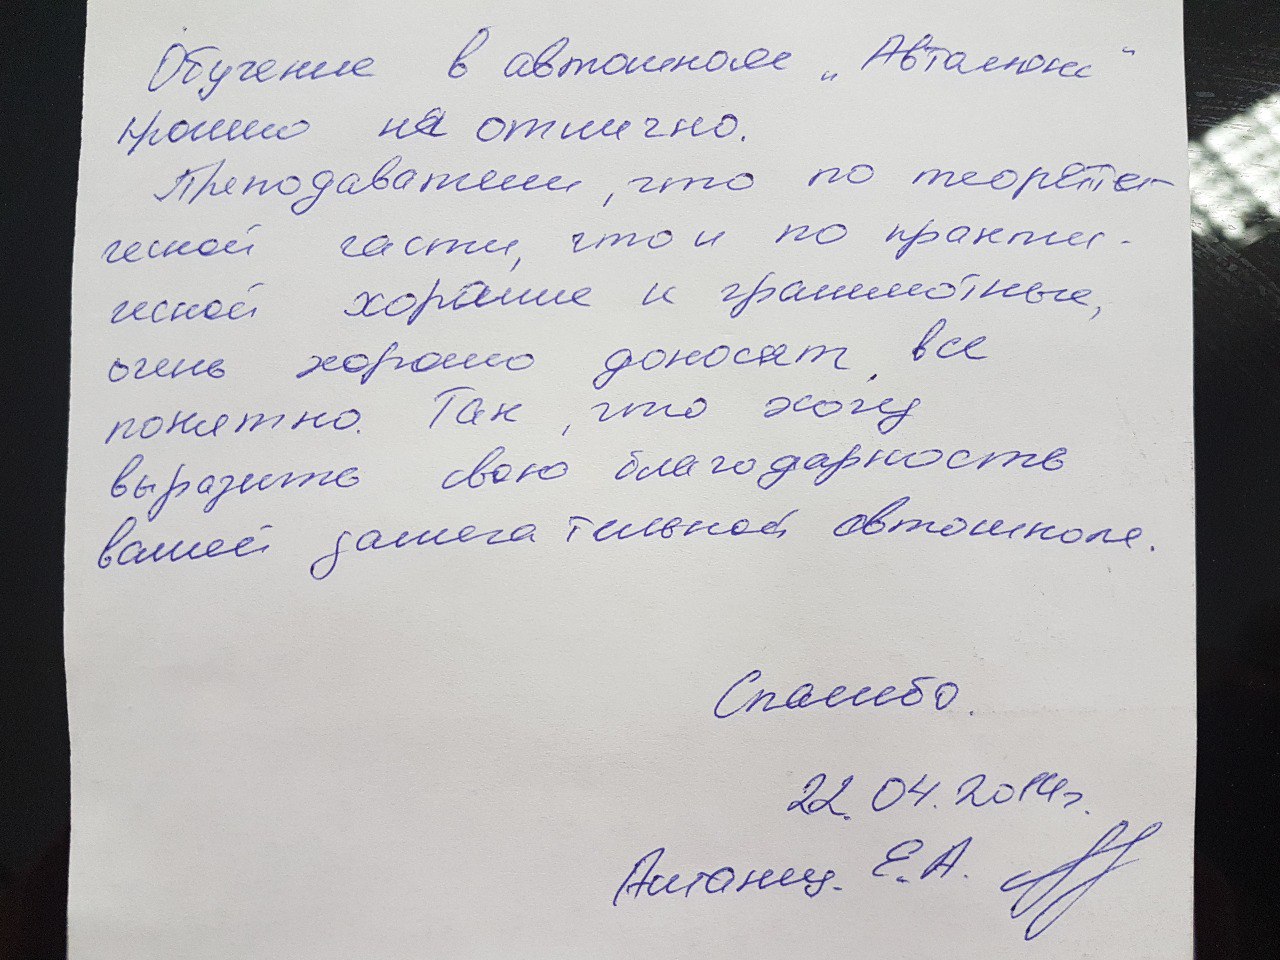 Обучение в автошколе „Автолюкс"
прошло на отлично.
Преподаватели, что по теорети-
ческой части, что и по практи-
ческой хорошие и грамотные,
очень хорошо доносят, все
понятно. Так, что хочу
выразить свою благодарность
вашей замечательной автошколе.
Спасибо.
22.04.2014г.
Е.А.